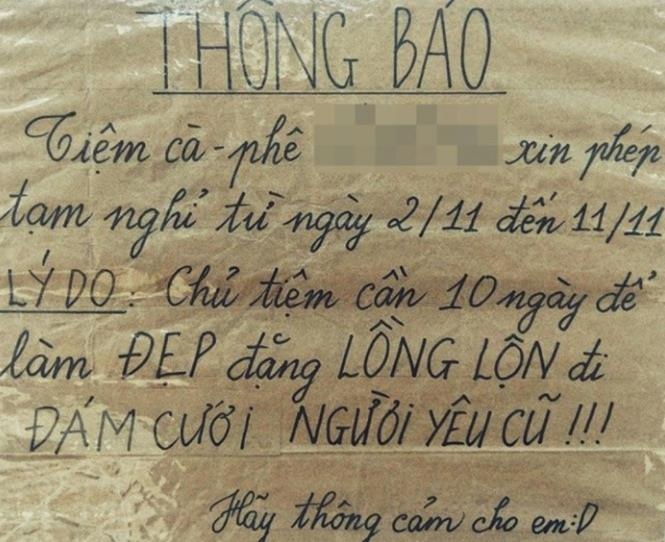 THÔNG BÁO
Tiệm cà-phê xin phép
tạm nghỉ từ ngày 2/11 đến 11/11
LÝ DO: Chủ tiệm cần 10 ngày để
làm ĐẸP đặng LỒNG LỘN đi
ĐÁM CƯỚI NGƯỜI YÊU CŨ!!!
Hãy thông cảm cho em:D